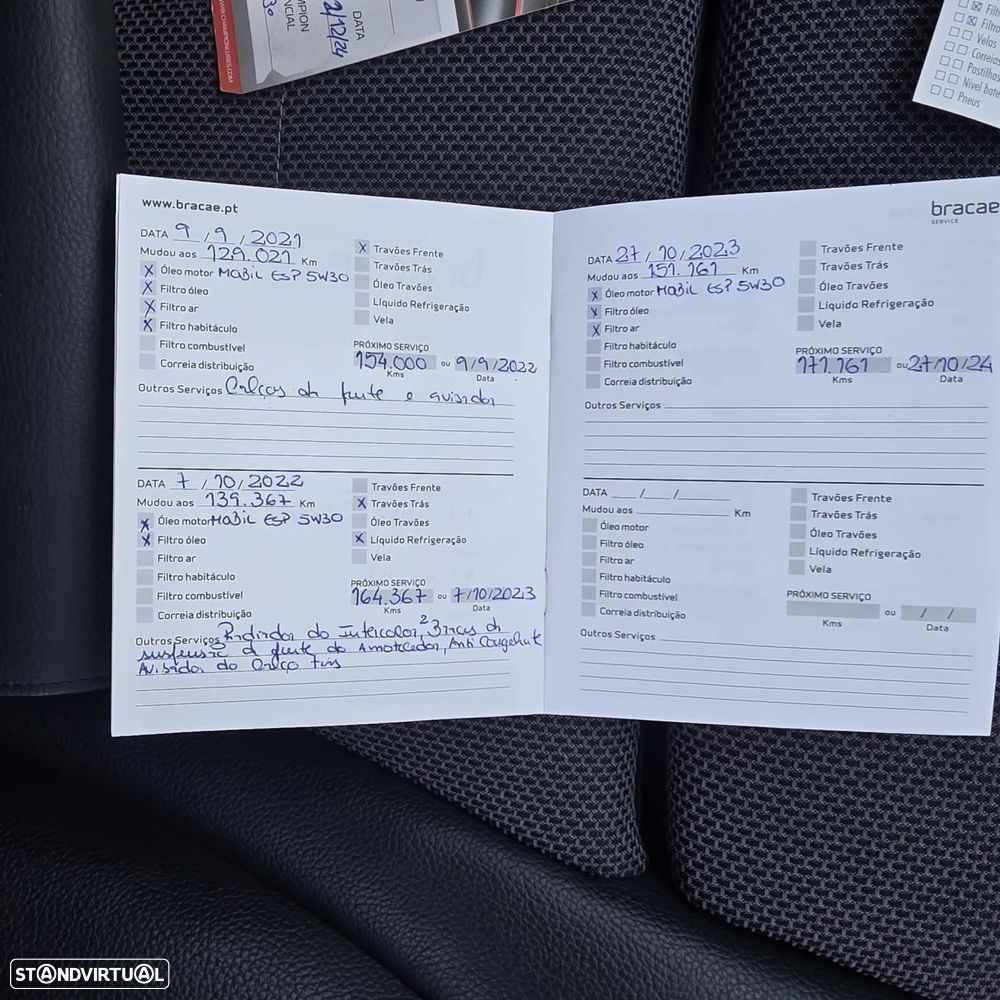 WWW.CHAMPIONLUBES.COM
DATA
2/12/24
Filtro
Velas
Correias
Pastilhas
Nível bate
Pneus
www.bracae.pt
DATA 9/9/2021
Mudou aos 129.021 Km
X Óleo motor MOBIL ESP 5W30
X Filtro óleo
X Filtro ar
X Filtro habitáculo
Filtro combustível
Correia distribuição
X Travões Frente
Travões Trás
Óleo Travões
Líquido Refrigeração
Vela
PRÓXIMO SERVIÇO
154.000 ou 9/9/2022
Kms Data
Outros Serviços Calços da frente e avisador
DATA 7/10/2022
Mudou aos 139.367 Km
X Óleo motor MOBIL ESP 5W30
X Filtro óleo
Filtro ar
Filtro habitáculo
Filtro combustível
Correia distribuição
Travões Frente
X Travões Trás
Óleo Travões
X Líquido Refrigeração
Vela
PRÓXIMO SERVIÇO
164.367 ou 7/10/2023
Kms Data
Outros Serviços Radiador do Intercolor, 2 Braços da
suspensão da frente do Amortecedor, Anti Congelante
Avisador do Calço trás
bracae
SERVICE
DATA 27/10/2023
Mudou aos 151.161 Km
X Óleo motor MOBIL ESP 5W30
X Filtro óleo
X Filtro ar
Filtro habitáculo
Filtro combustível
Correia distribuição
Travões Frente
Travões Trás
Óleo Travões
Líquido Refrigeração
Vela
PRÓXIMO SERVIÇO
171.161 ou 27/10/24
Kms Data
Outros Serviços
DATA / /
Mudou aos Km
Óleo motor
Filtro óleo
Filtro ar
Filtro habitáculo
Filtro combustível
Correia distribuição
Travões Frente
Travões Trás
Óleo Travões
Líquido Refrigeração
Vela
PRÓXIMO SERVIÇO
ou / /
Kms Data
Outros Serviços
STANDVIRTUAL